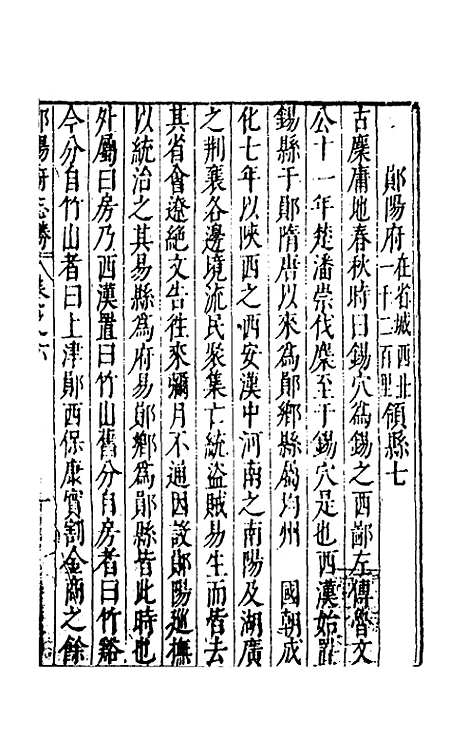 鄖陽府在省城西北一千二百里領縣七
古麇庸地春秋時曰錫穴為錫之西鄙左傳魯文
公十一年楚潘崇伐麇至于錫穴是也西漢始置
錫縣于鄖隋唐以來為鄖鄉縣屬均州　國朝成
化七年以陝西之西安漢中河南之南陽及湖廣
之荆襄各邊境流民聚集亡統盜賊易生而皆去
其省會遼絕文告往來彌月不通因設鄖陽巡撫
以統治之其易縣為府易鄖鄉為鄖縣皆此時也
外屬曰房乃西漢置曰竹山舊分自房者曰竹谿
今分自竹山者曰上津鄖西保康實割金商之餘
鄖陽府志勝 卷之六